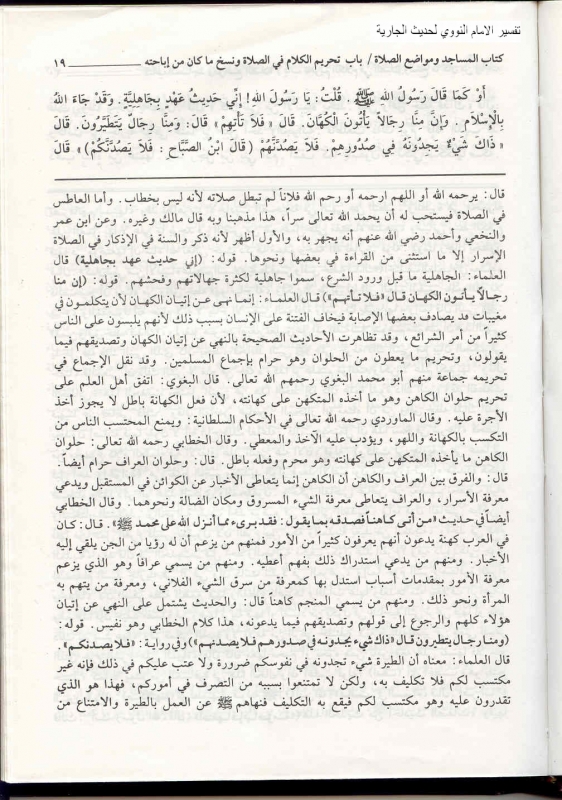 تفسير الامام النووي لحديث الجارية
كتاب المساجد ومواضع الصلاة / باب تحريم الكلام في الصلاة ونسخ ما كان من إباحته ــــــــــــــ ١٩
أَوْ كَمَا قَالَ رَسُولُ اللَّهِ ﷺ. قُلْتُ: يَا رَسُولَ اللَّهِ! إِنِّي حَدِيثُ عَهْدٍ بِجَاهِلِيَّةٍ. وَقَدْ جَاءَ اللَّهُ
بِالْإِسْلَامِ. وَإِنَّ مِنَّا رِجَالاً يَأْتُونَ الْكُهَّانَ. قَالَ «فَلَا تَأْتِهِمْ» قَالَ: وَمِنَّا رِجَالٌ يَتَطَيَّرُونَ. قَالَ
«ذَاكَ شَيْءٌ يَجِدُونَهُ فِي صُدُورِهِمْ. فَلَا يَصُدَّنَّهُمْ (قَالَ ابْنُ الصَّبَّاحِ: فَلَا يَصُدَّنَّكُمْ)» قَالَ
قال: يرحمه الله أو اللهم ارحمه أو رحم الله فلاناً لم تبطل صلاته لأنه ليس بخطاب. وأما العاطس
في الصلاة فيستحب له أن يحمد الله تعالى سراً، هذا مذهبنا وبه قال مالك وغيره. وعن ابن عمر
والنخعي وأحمد رضي الله عنهم أنه يجهر به، والأول أظهر لأنه ذكر والسنة في الإذكار في الصلاة
الإسرار إلا ما استثنى من القراءة في بعضها ونحوها. قوله: (إني حديث عهد بجاهلية) قال
العلماء: الجاهلية ما قبل ورود الشرع، سموا جاهلية لكثرة جهالاتهم وفحشهم. قوله: (إن منا
رجالاً يأتون الكهان قال «فلا تأتهم») قال العلماء: إنما نهى عن إتيان الكهان لأن يتكلمون في
مغيبات قد يصادف بعضها الإصابة فيخاف الفتنة على الإنسان بسبب ذلك لأنهم يلبسون على الناس
كثيراً من أمر الشرائع، وقد تظاهرت الأحاديث الصحيحة بالنهي عن إتيان الكهان وتصديقهم فيما
يقولون، وتحريم ما يعطون من الحلوان وهو حرام بإجماع المسلمين. وقد نقل الإجماع في
تحريمه جماعة منهم أبو محمد البغوي رحمهم الله تعالى. قال البغوي: اتفق أهل العلم على
تحريم حلوان الكاهن وهو ما أخذه المتكهن على كهانته، لأن فعل الكهانة باطل لا يجوز أخذ
الأجرة عليه. وقال الماوردي رحمه الله تعالى في الأحكام السلطانية: ويمنع المحتسب الناس من
التكسب بالكهانة واللهو، ويؤدب عليه الآخذ والمعطي. وقال الخطابي رحمه الله تعالى: حلوان
الكاهن ما يأخذه المتكهن على كهانته وهو محرم وفعله باطل. قال: وحلوان العراف حرام أيضاً.
قال: والفرق بين العراف والكاهن أن الكاهن إنما يتعاطى الأخبار عن الكوائن في المستقبل ويدعي
معرفة الأسرار، والعراف يتعاطى معرفة الشيء المسروق ومكان الضالة ونحوهما. وقال الخطابي
أيضاً في حديث «من أتى كاهناً فصدقه بما يقول: فقد برىء مما أنزل الله على محمد ﷺ». قال: كان
في العرب كهنة يدعون أنهم يعرفون كثيراً من الأمور فمنهم من يزعم أن له رؤيا من الجن يلقي إليه
الأخبار. ومنهم من يدعي استدراك ذلك بفهم أعطيه. ومنهم من يسمي عرافاً وهو الذي يزعم
معرفة الأمور بمقدمات أسباب استدل بها كمعرفة من سرق الشيء الفلاني، ومعرفة من يتهم به
المرأة ونحو ذلك. ومنهم من يسمي المنجم كاهناً قال: والحديث يشتمل على النهي عن إتيان
هؤلاء كلهم والرجوع إلى قولهم وتصديقهم فيما يدعونه، هذا كلام الخطابي وهو نفيس. قوله:
(ومنا رجال يتطيرون قال «ذاك شيء يجدونه في صدورهم فلا يصدنهم») وفي رواية: «فلا يصدنكم».
قال العلماء: معناه أن الطيرة شيء تجدونه في نفوسكم ضرورة ولا عتب عليكم في ذلك فإنه غير
مكتسب لكم فلا تكليف به، ولكن لا تمتنعوا بسببه من التصرف في أموركم، فهذا هو الذي
تقدرون عليه وهو مكتسب لكم فيقع به التكليف فنهاهم ﷺ عن العمل بالطيرة والامتناع من